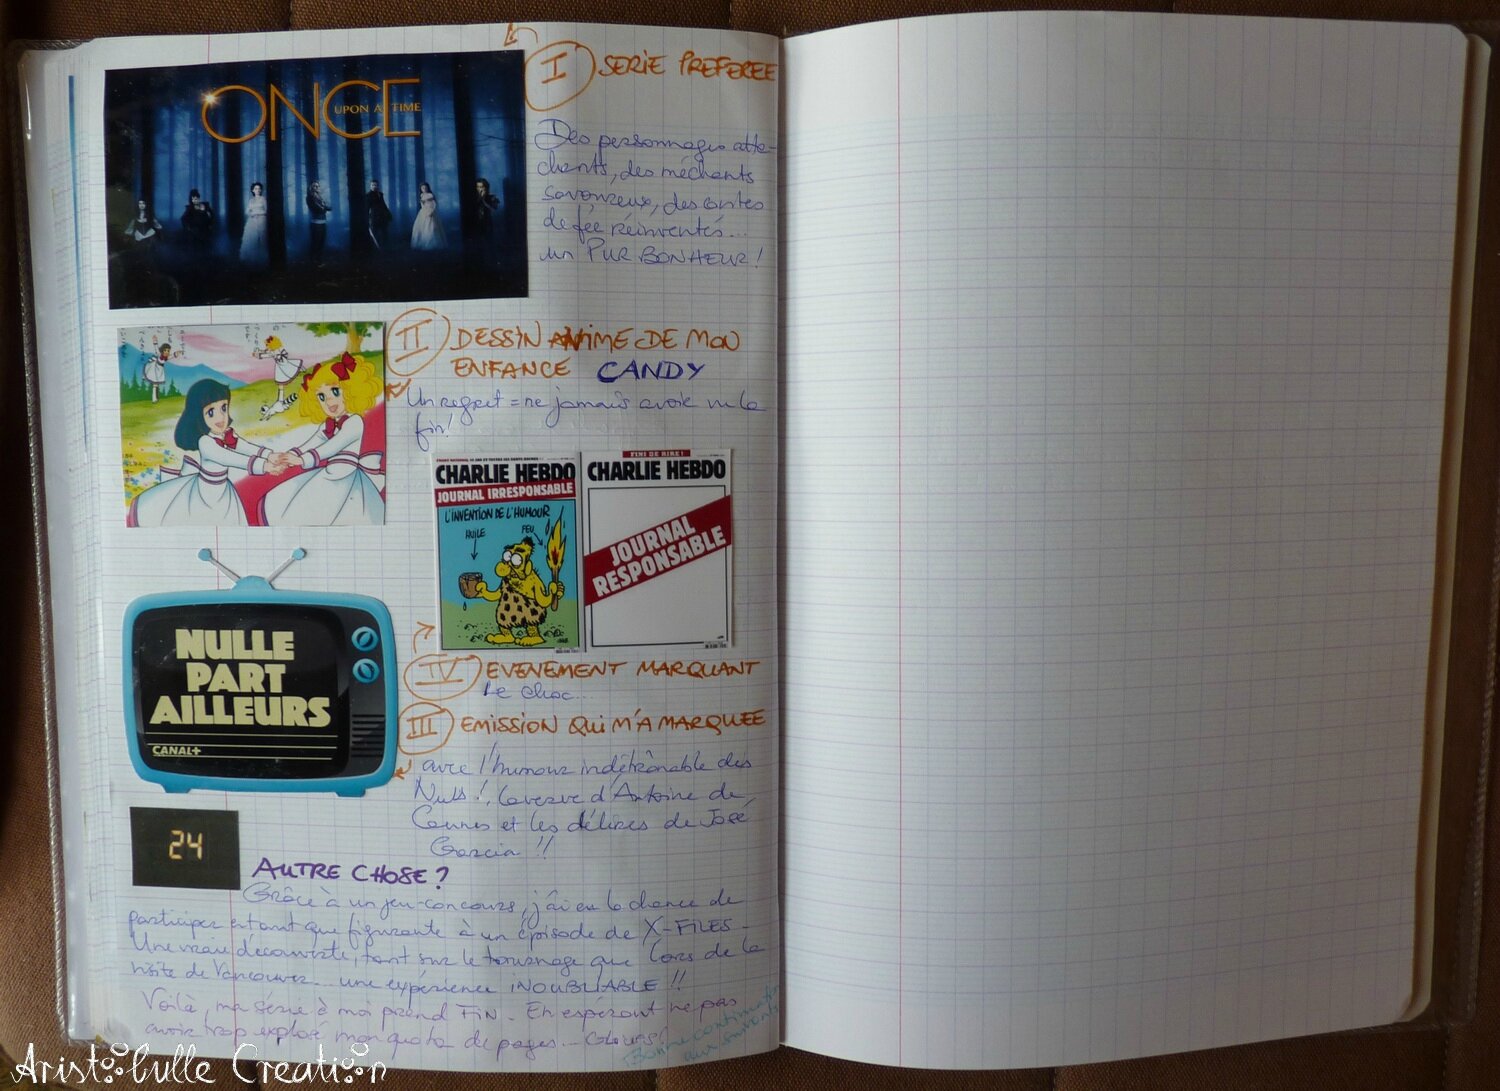 ONCE
UPON A TIME
I SERIE PREFEREE
Des personnages atta-
chants, des méchants
savoureux, des contes
de fée réinventés...
un PUR BONHEUR !
II DESSIN ANIME DE MON
ENFANCE CANDY
Un regret = ne jamais avoir vu la
fin !
CHARLIE HEBDO
JOURNAL IRRESPONSABLE
L'INVENTION DE L'HUMOUR
HUILE
FEU
FINI DE RIRE !
CHARLIE HEBDO
JOURNAL
RESPONSABLE
IV EVENEMENT MARQUANT
Le choc...
III EMISSION QUI M'A MARQUEE
NULLE
PART
AILLEURS
CANAL+
avec l'humour indétrônable des
Nuls !, la verve d'Antoine de
Caunes et les délires de José
Garcia !!
24
AUTRE CHOSE ?
Grâce à un jeu-concours, j'ai eu la chance de
participer en tant que figurante à un épisode de X-FILES -
Une vraie découverte, tant sur le tournage que lors de la
visite de Vancouver... une expérience INOUBLIABLE !!
Voilà, ma série à moi prend FIN. En espérant ne pas
avoir trop explosé mon quota de pages...
Bonne continuation
aux suivants
Aristobulle Creation